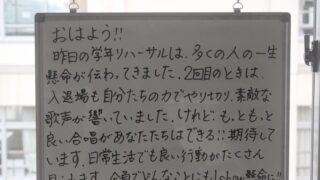 おはよう!!
昨日の学年リハーサルは、多くの人の一生
懸命が伝わってきました。2回目のときは、
入退場も自分たちの力でやりきり、素敵な
歌声が響いていました。けれど、もっともっと
良い合唱があなたたちはできる!!期待して
います。日常生活でも良い行動がたくさん